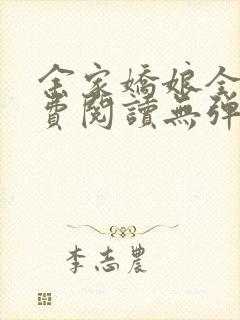 金家嬌娘全
費閱讀無彈
李志農